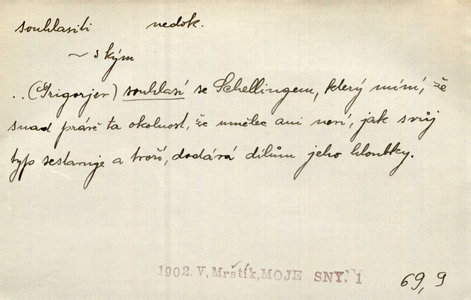 souhlasiti nedok.
~ s kým
..(Grigorjev) souhlasí se Schellingem, který míní, že
snad právě ta okolnost, že umělec ani neví, jak svůj
typ sestavuje a tvoří, dodává dílům jeho hloubky.
1902. V. Mrštík, MOJE SNY. 1
69, 9